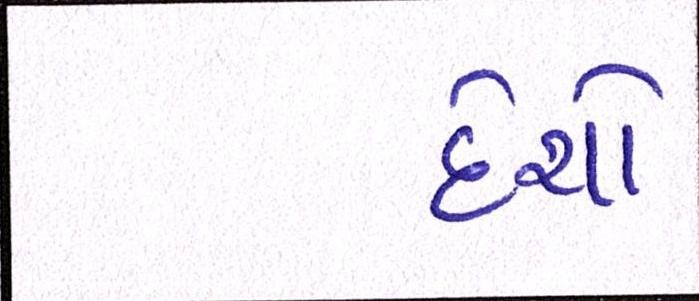 દેશો